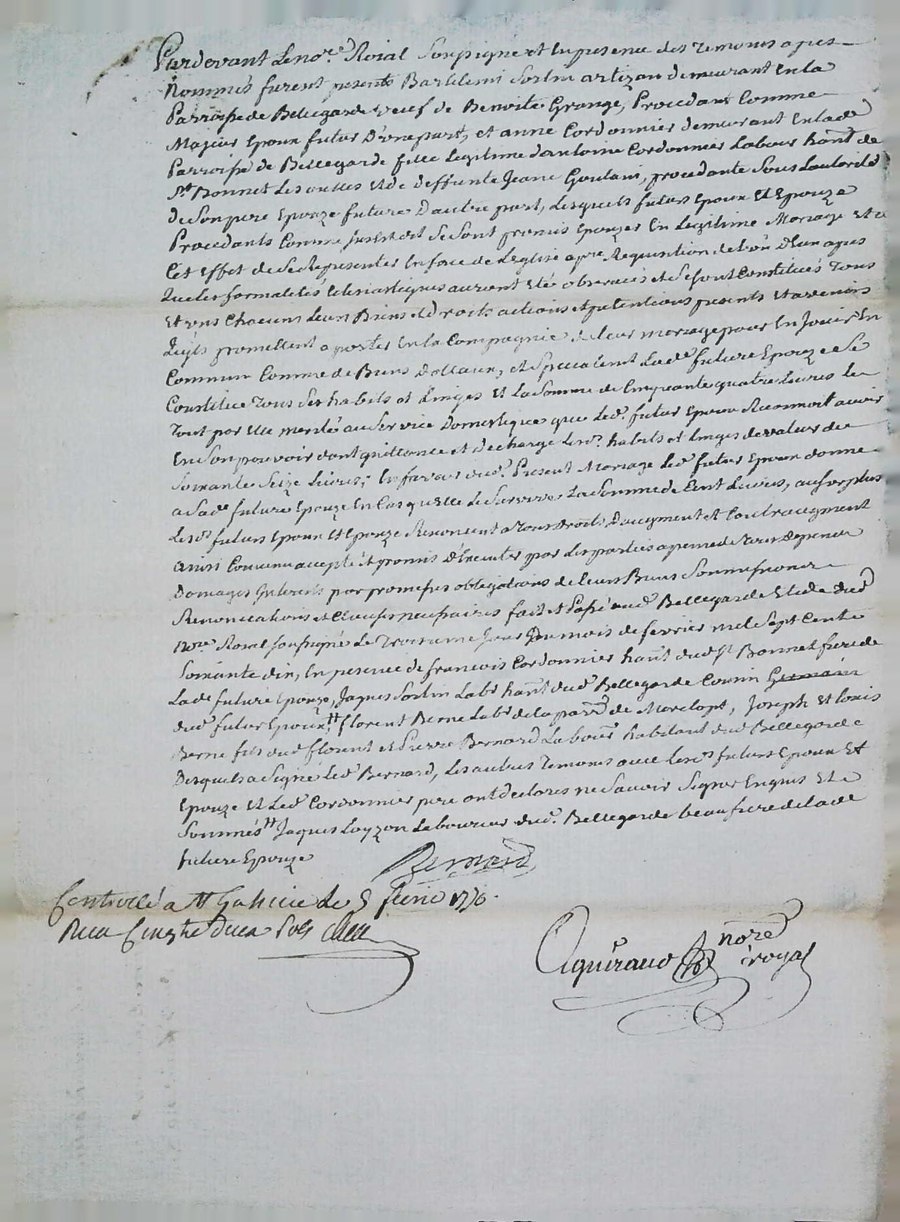 Pardevant Le no.re Roial Soussigné et En presence des Temoins apres
Nommés furent presents Bartilemi Sorlin artizan demeurant En la
Parroisse de Bellegarde veuf de Benoite Grange, Procedant Comme
Majeur Epoux futur D'une part, et anne Cordonnier demeurant En lad.e
Parroisse de Bellegarde fille Legitime d'antoine Cordonnier Labour hant de
St. Bonnet Les oulles Et de deffunte Jeane Goutain, procedante Sous L'autorité
de Son pere Epouze future D'autre part, Lesquels futurs Epoux Et Epouze
Procedants Comme Susdit est Se Sont promis Epouzer En Legitime Mariage Et a
Cet Effet de Se Representer En face de L'eglise a pre. Requisition de L'un D'eux apres
que Les formalités Eclesiastiques auront Eté observées et Se Sont Constitués Tous
Et uns Chacuns Leurs Biens et droits actions et pretentions presents Et avenirs
qu'ils promettent aporter En la Compagnie de Leur mariage pour En Jouir En
Commun Comme de Biens Dottaux, et Specialement Lad.e future Epouze Se
Constitue Tous Ses habits et Linges et La Somme de Cinquante quatre Livres Le
Tout par Elle merité au Service Domestique que Led. futur Epoux Reconnoit avoir
En Son pouvoir dont quittance et decharge Lesd. habits et Linges de valeur de
Soixante Seize Livres; En faveur dud. Present Mariage Led. futur Epoux donne
a Sad. future Epouze En Cas qu'elle Le Survive La Somme de Cent Livres, au Surplus
Lesd. futurs Epoux Et Epouze Renoncent a Tous droits D'augment et Contraugment
ainsi Convenu accepté et promis D'executer par Les parties a peine de Tous Depens
Domages Interests par promesses obligations de Leurs Biens Soumissions
Renonciations et Clauses necessaires fait et Passé aud. Bellegarde Etude dud.
no.re Roial Soussigné Le Troisieme Jour Du mois de fevrier mil Sept Cents
Soixante dix, En presence de francois Cordonnier hant dud. St. Bonnet frere de
Lad.e future Epouze, Jaques Sorlin Labr hant dud. Bellegarde Cousin Germain
dud. futur Epoux, Florent Berne Labr de la parre de Marclopt, Joseph Et Louis
Berne fils dud. florent et Pierre Bernard Labour habitant dud. Bellegarde
Desquels a Signé Led. Bernard, Les autres Temoins avec Lesd. futurs Epoux Et
Epouze Et Led. Cordonnier pere ont declarés ne Savoir Signer Enquis Et
Sommés Jaques Loyzon Laboureur dud. Bellegarde beau frere de lad.e
future Epouze
Bernard
Controllé a St Galmier le 5 fevrier 1770.
Recu
Sols
no.re
royal